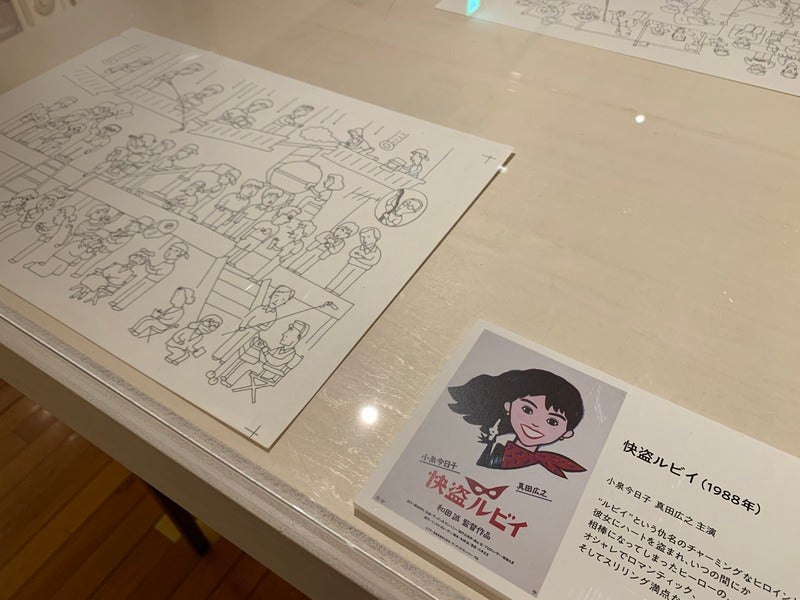 小泉今日子
真田広之
快盗ルビイ
和田 誠 監督作品
快盗ルビイ(1988年)
小泉今日子 真田広之 主演
“ルビイ”という仇名のチャーミングなヒロイン
彼女にハートを盗まれ、いつの間にか
相棒になってしまったヒーローの、
オシャレでロマンティック、
そしてスリリング満点な